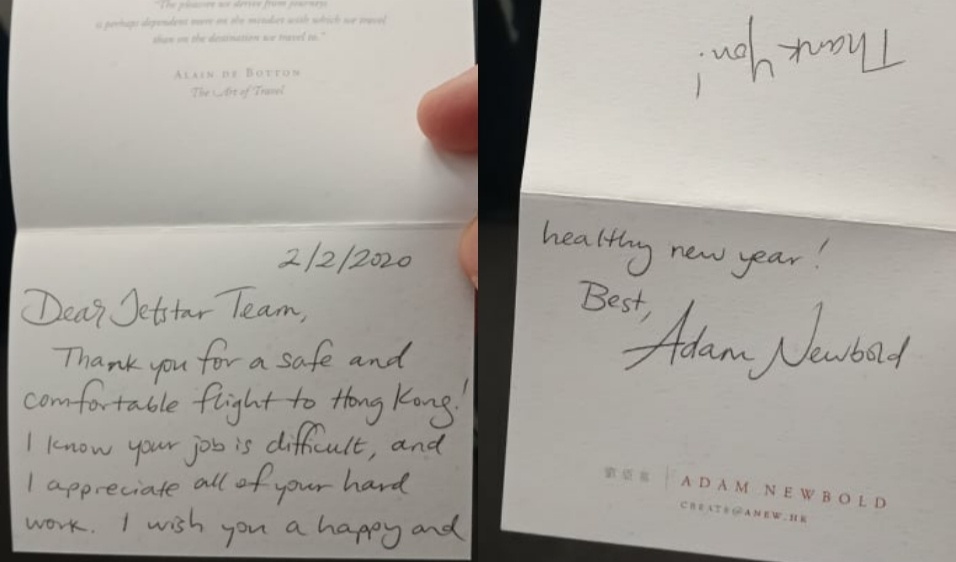 "The pleasure we derive from journeys
is perhaps dependent more on the mindset with which we travel
than on the destination we travel to."
ALAIN DE BOTTON
The Art of Travel
2/2/2020
Dear Jetstar Team,
Thank you for a safe and
comfortable flight to Hong Kong!
I know your job is difficult, and
I appreciate all of your hard
work. I wish you a happy and
Thank You!
healthy new year!
Best,
Adam Newbold
ADAM NEWBOLD
CREATE@ANEW.HK